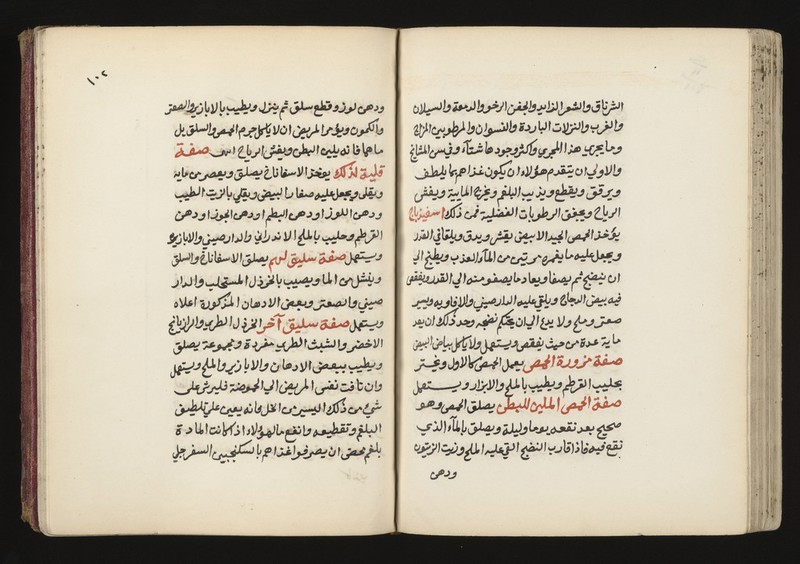 الشرناق والشعر الزايد والجفن الرخو والدمعة والسيلان
والغرب والنزلات الباردة والنسوان والمرطوبين المزاج
وما يجري هذا المجرى وكثر وجودها شتاء وفي سن المشايخ
والاولى ان يتقدم هؤلاء ان يكون غذاهم بما يلطف
ويرقق ويقطع ويذيب البلغم ويخرج المايية ويفش
الرياح ويجفف الرطوبات الفضلية فمن ذلك اسفيذباج
يؤخذ الحمص الجيد الابيض يقش ويدق ويلقا في القدر
ويجعل عليه ما يغمره مرتين من الماء العذب ويطبخ الى
ان ينضج ثم يصفا ويعاد ما يصفو منه الى القدر ويفقص
فيه بيض الدجاج ويلقى عليه الدارصيني والافاويه ويسير
صعتر وملح ولا يدع الى ان يحكم نضجه وحد ذلك ان يعد
ماية عدة من حيث يفقص ويستعمل ولا ياكل بياض البيض
صفة مزورة الحمص يعمل الحمص كالاول ويخثر
بحليب القرطم ويطيب بالملح والابزار ويستعمل
صفة الحمص الملين للبطن يصلق الحمص وهو
صحيح بعد نقعه يوما وليلة ويصلق بالماء الذي
نقع فيه فاذا قارب النضج القى عليه الملح وزيت الزيتون
ودهن
١٠٢
ودهن لوز وقطع سلق ثم ينزل ويطيب بالابازير والصعتر
والكمون ويؤمر المريض ان لا ياكل جرم الحمص والسلق بل
ماهما فانه يلين البطن ويفش الرياح صفة
قلية لذلك يوخذ الاسفاناخ يصلق ويعصر من مايه
ويقلى ويجعل عليه صفار البيض ويقلى بالزيت الطيب
ودهن اللوز او دهن البطم او دهن الجوز او دهن
القرطم وحليب بالملح الاندراني والدارصيني والابازير
ويستعمل صفة سليق لهم يصلق الاسفاناخ والسلق
وينشل من الما ويصيب بالخردل المستحلب والدار
صيني والصعتر وبعض الادهان المذكورة اعلاه
ويستعمل صفة سليق آخر الخردل الطري والرازيانج
الاخضر والشبث الطري مفردة ومجموعة يصلق
ويطيب ببعض الادهان والابازير والملح ويستعمل
وان تاقت نفس المريض الى الحموضة فليرش على
شي من ذلك اليسير من الخل فانه يعين على تلطيف
البلغم وتقطيعه وانفع ما لهؤلاء اذا كانت المادة
بلغم محض ان يصرفوا غذاهم بالسكنجبين السفرجلي